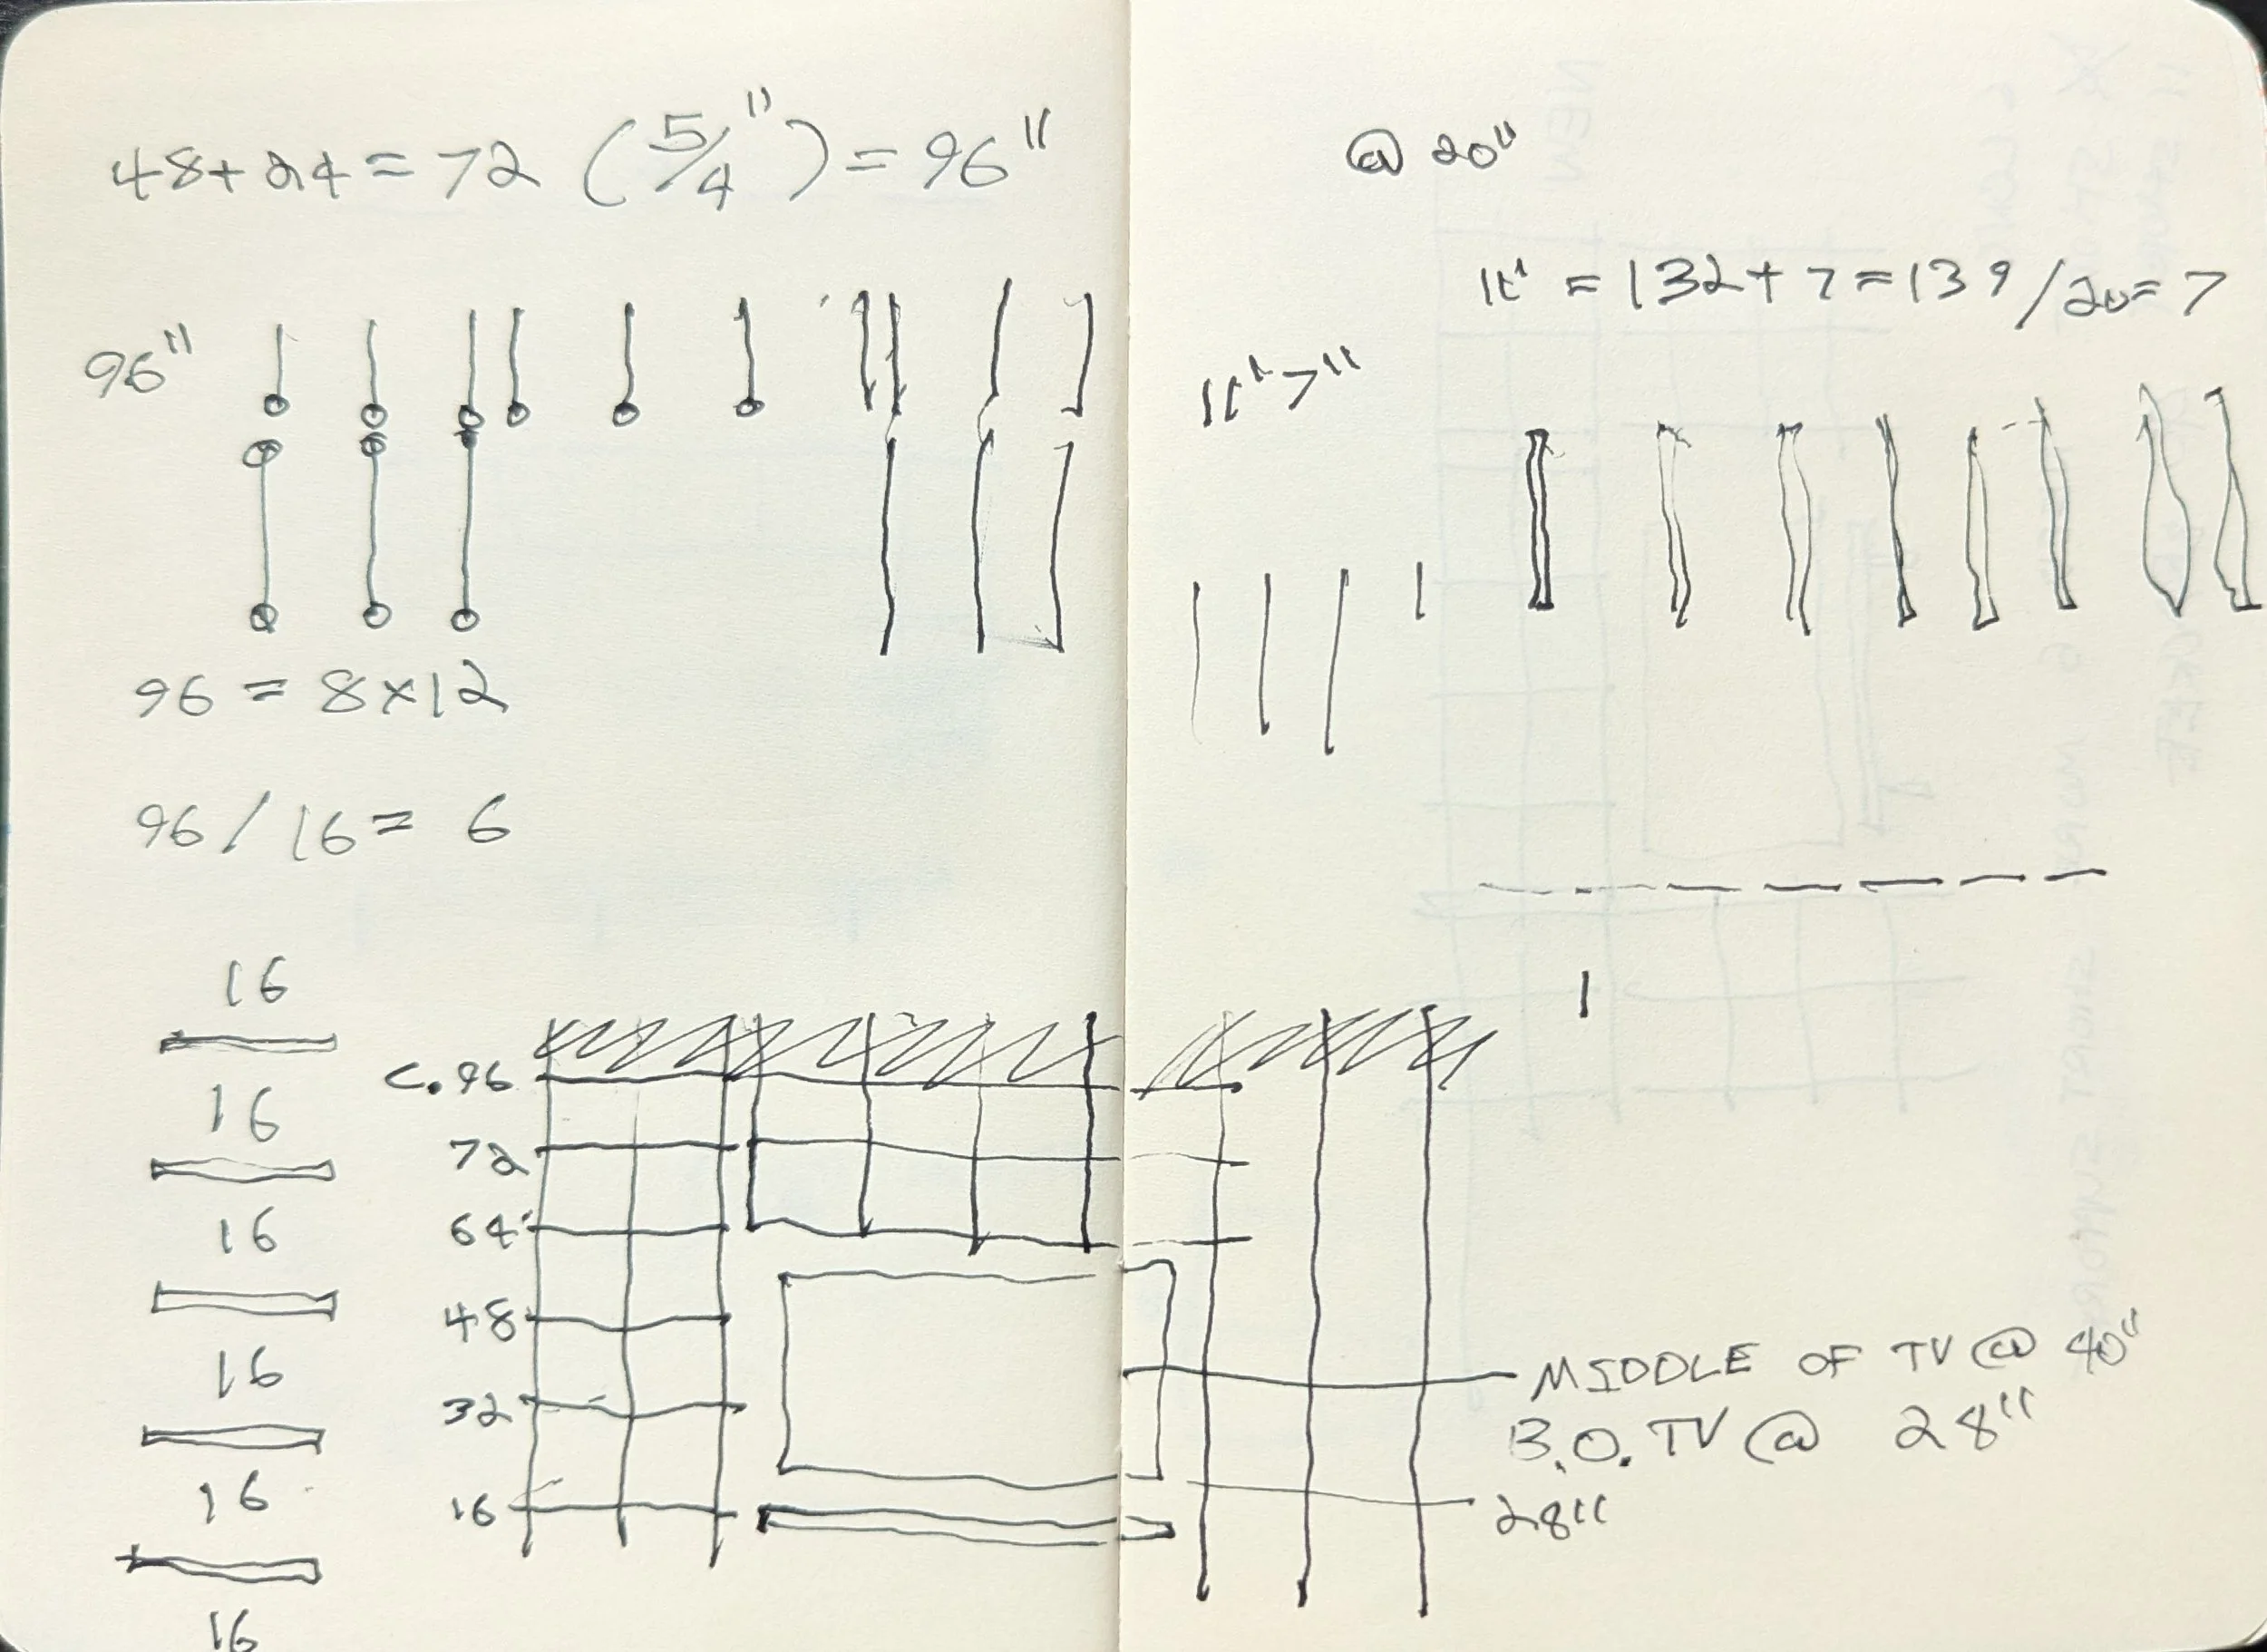 48+24=72 (5/4")=96"
96"
96 = 8×12
96/16= 6
16
16
16
16
16
16
C. 96
72
64
48
32
16
@ 20"
11' = 132+7=139/20=7
11'7"
MIDDLE OF TV @ 40"
B.O. TV @ 28"
28"